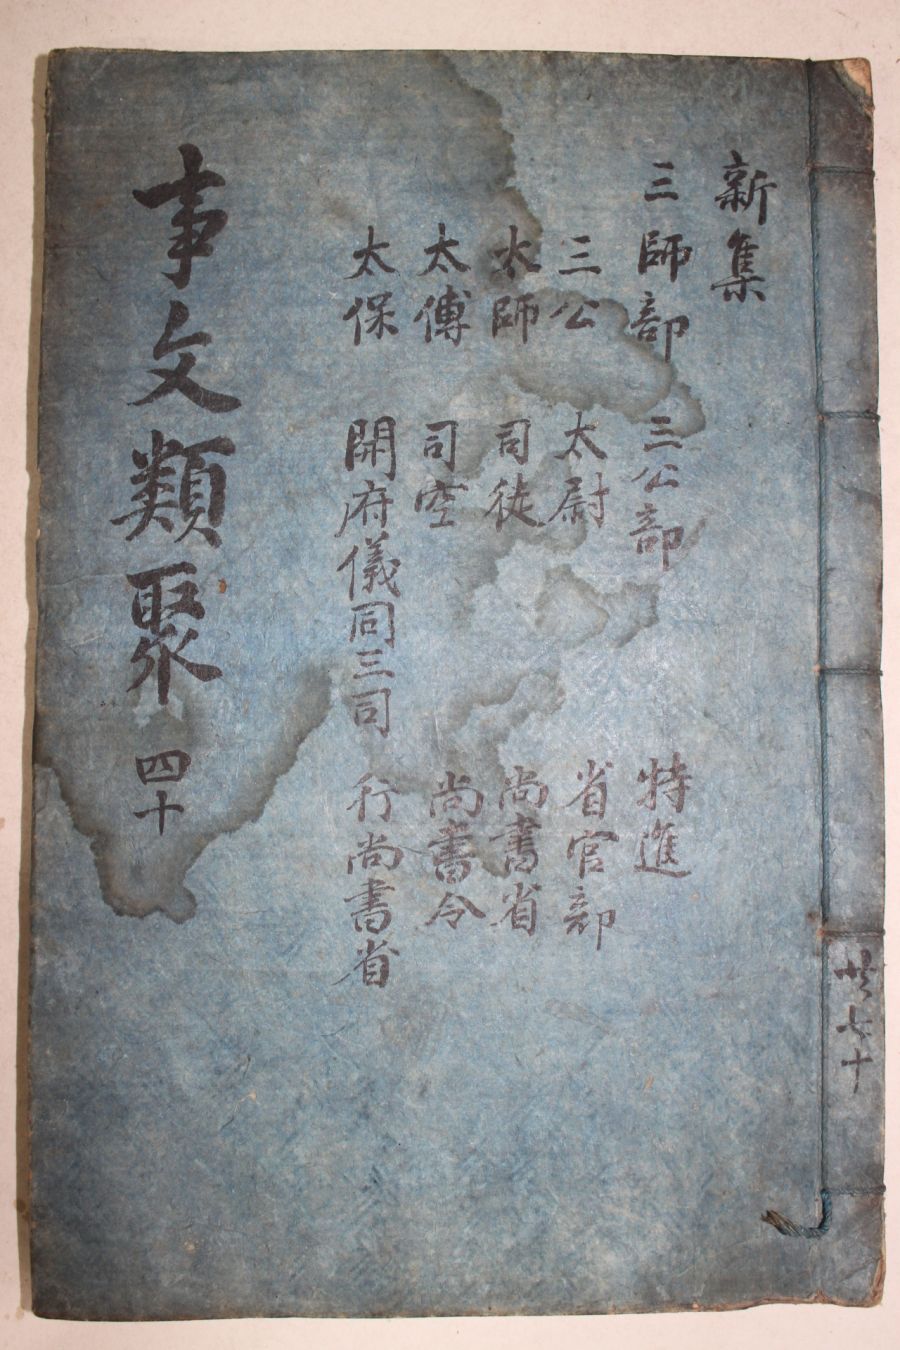 新集
三師部 三公部 特進
三公 太尉 省官部
太師 司徒 尚書省
太傅 司空 尚書令
太保 開府儀同三司 行尚書省
事文類聚 四十
共七十